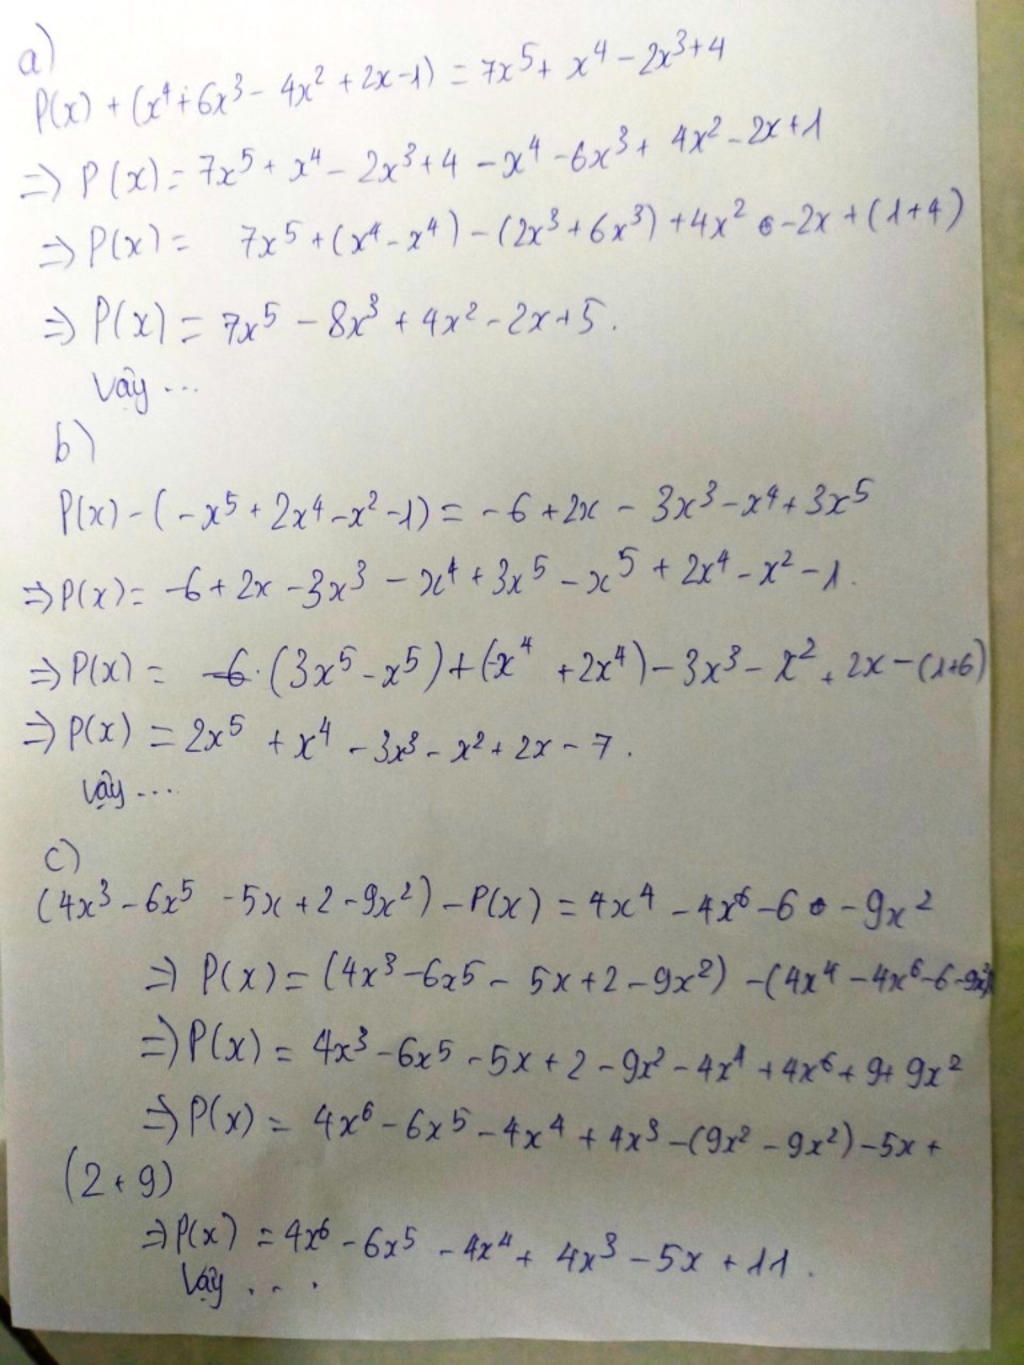 a)
P(x) + (x⁴ + 6x³ - 4x² + 2x - 1) = 7x⁵ + x⁴ - 2x³ + 4
=> P(x) = 7x⁵ + x⁴ - 2x³ + 4 - x⁴ - 6x³ + 4x² - 2x + 1
=> P(x) = 7x⁵ + (x⁴ - x⁴) - (2x³ + 6x³) + 4x² - 2x + (1 + 4)
=> P(x) = 7x⁵ - 8x³ + 4x² - 2x + 5.
Vậy ...
b)
P(x) - (-x⁵ + 2x⁴ - x² - 1) = -6 + 2x - 3x³ - x⁴ + 3x⁵
=> P(x) = -6 + 2x - 3x³ - x⁴ + 3x⁵ - x⁵ + 2x⁴ - x² - 1.
=> P(x) = (3x⁵ - x⁵) + (-x⁴ + 2x⁴) - 3x³ - x² + 2x - (1+6)
=> P(x) = 2x⁵ + x⁴ - 3x³ - x² + 2x - 7.
Vậy ...
c)
(4x³ - 6x⁵ - 5x + 2 - 9x²) - P(x) = 4x⁴ - 4x⁶ - 6 - 9x²
=> P(x) = (4x³ - 6x⁵ - 5x + 2 - 9x²) - (4x⁴ - 4x⁶ - 6 - 9x²)
=> P(x) = 4x³ - 6x⁵ - 5x + 2 - 9x² - 4x⁴ + 4x⁶ + 9 + 9x²
=> P(x) = 4x⁶ - 6x⁵ - 4x⁴ + 4x³ - (9x² - 9x²) - 5x +
(2 + 9)
=> P(x) = 4x⁶ - 6x⁵ - 4x⁴ + 4x³ - 5x + 11.
Vậy ...